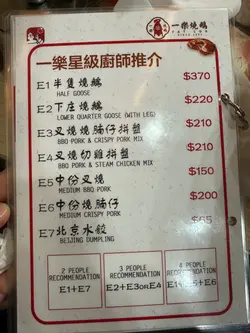 一樂燒鵝
YAT LOK
SINCE 1957
一樂星級廚師推介
E1 半隻燒鵝 $370
HALF GOOSE
E2 下庄燒鵝 $220
LOWER QUARTER GOOSE (WITH LEG)
E3 叉燒燒腩仔拼盤 $210
BBQ PORK & CRISPY PORK MIX
E4 叉燒切雞拼盤 $210
BBQ PORK & STEAM CHICKEN MIX
E5 中份叉燒 $150
MEDIUM BBQ PORK
E6 中份燒腩仔 $200
MEDIUM CRISPY PORK
E7 北京水餃 $65
BEIJING DUMPLING
2 PEOPLE RECOMMENDATION
E1+E7
3 PEOPLE RECOMMENDATION
E2+E3ORE4
4 PEOPLE RECOMMENDATION